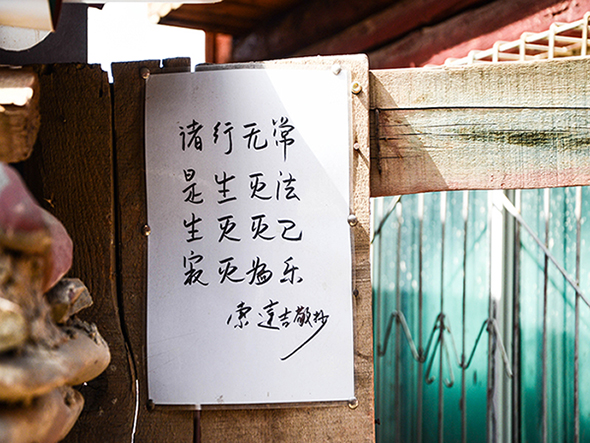 诸行无常
是生灭法
生灭灭已
寂灭为乐
索达吉敬抄